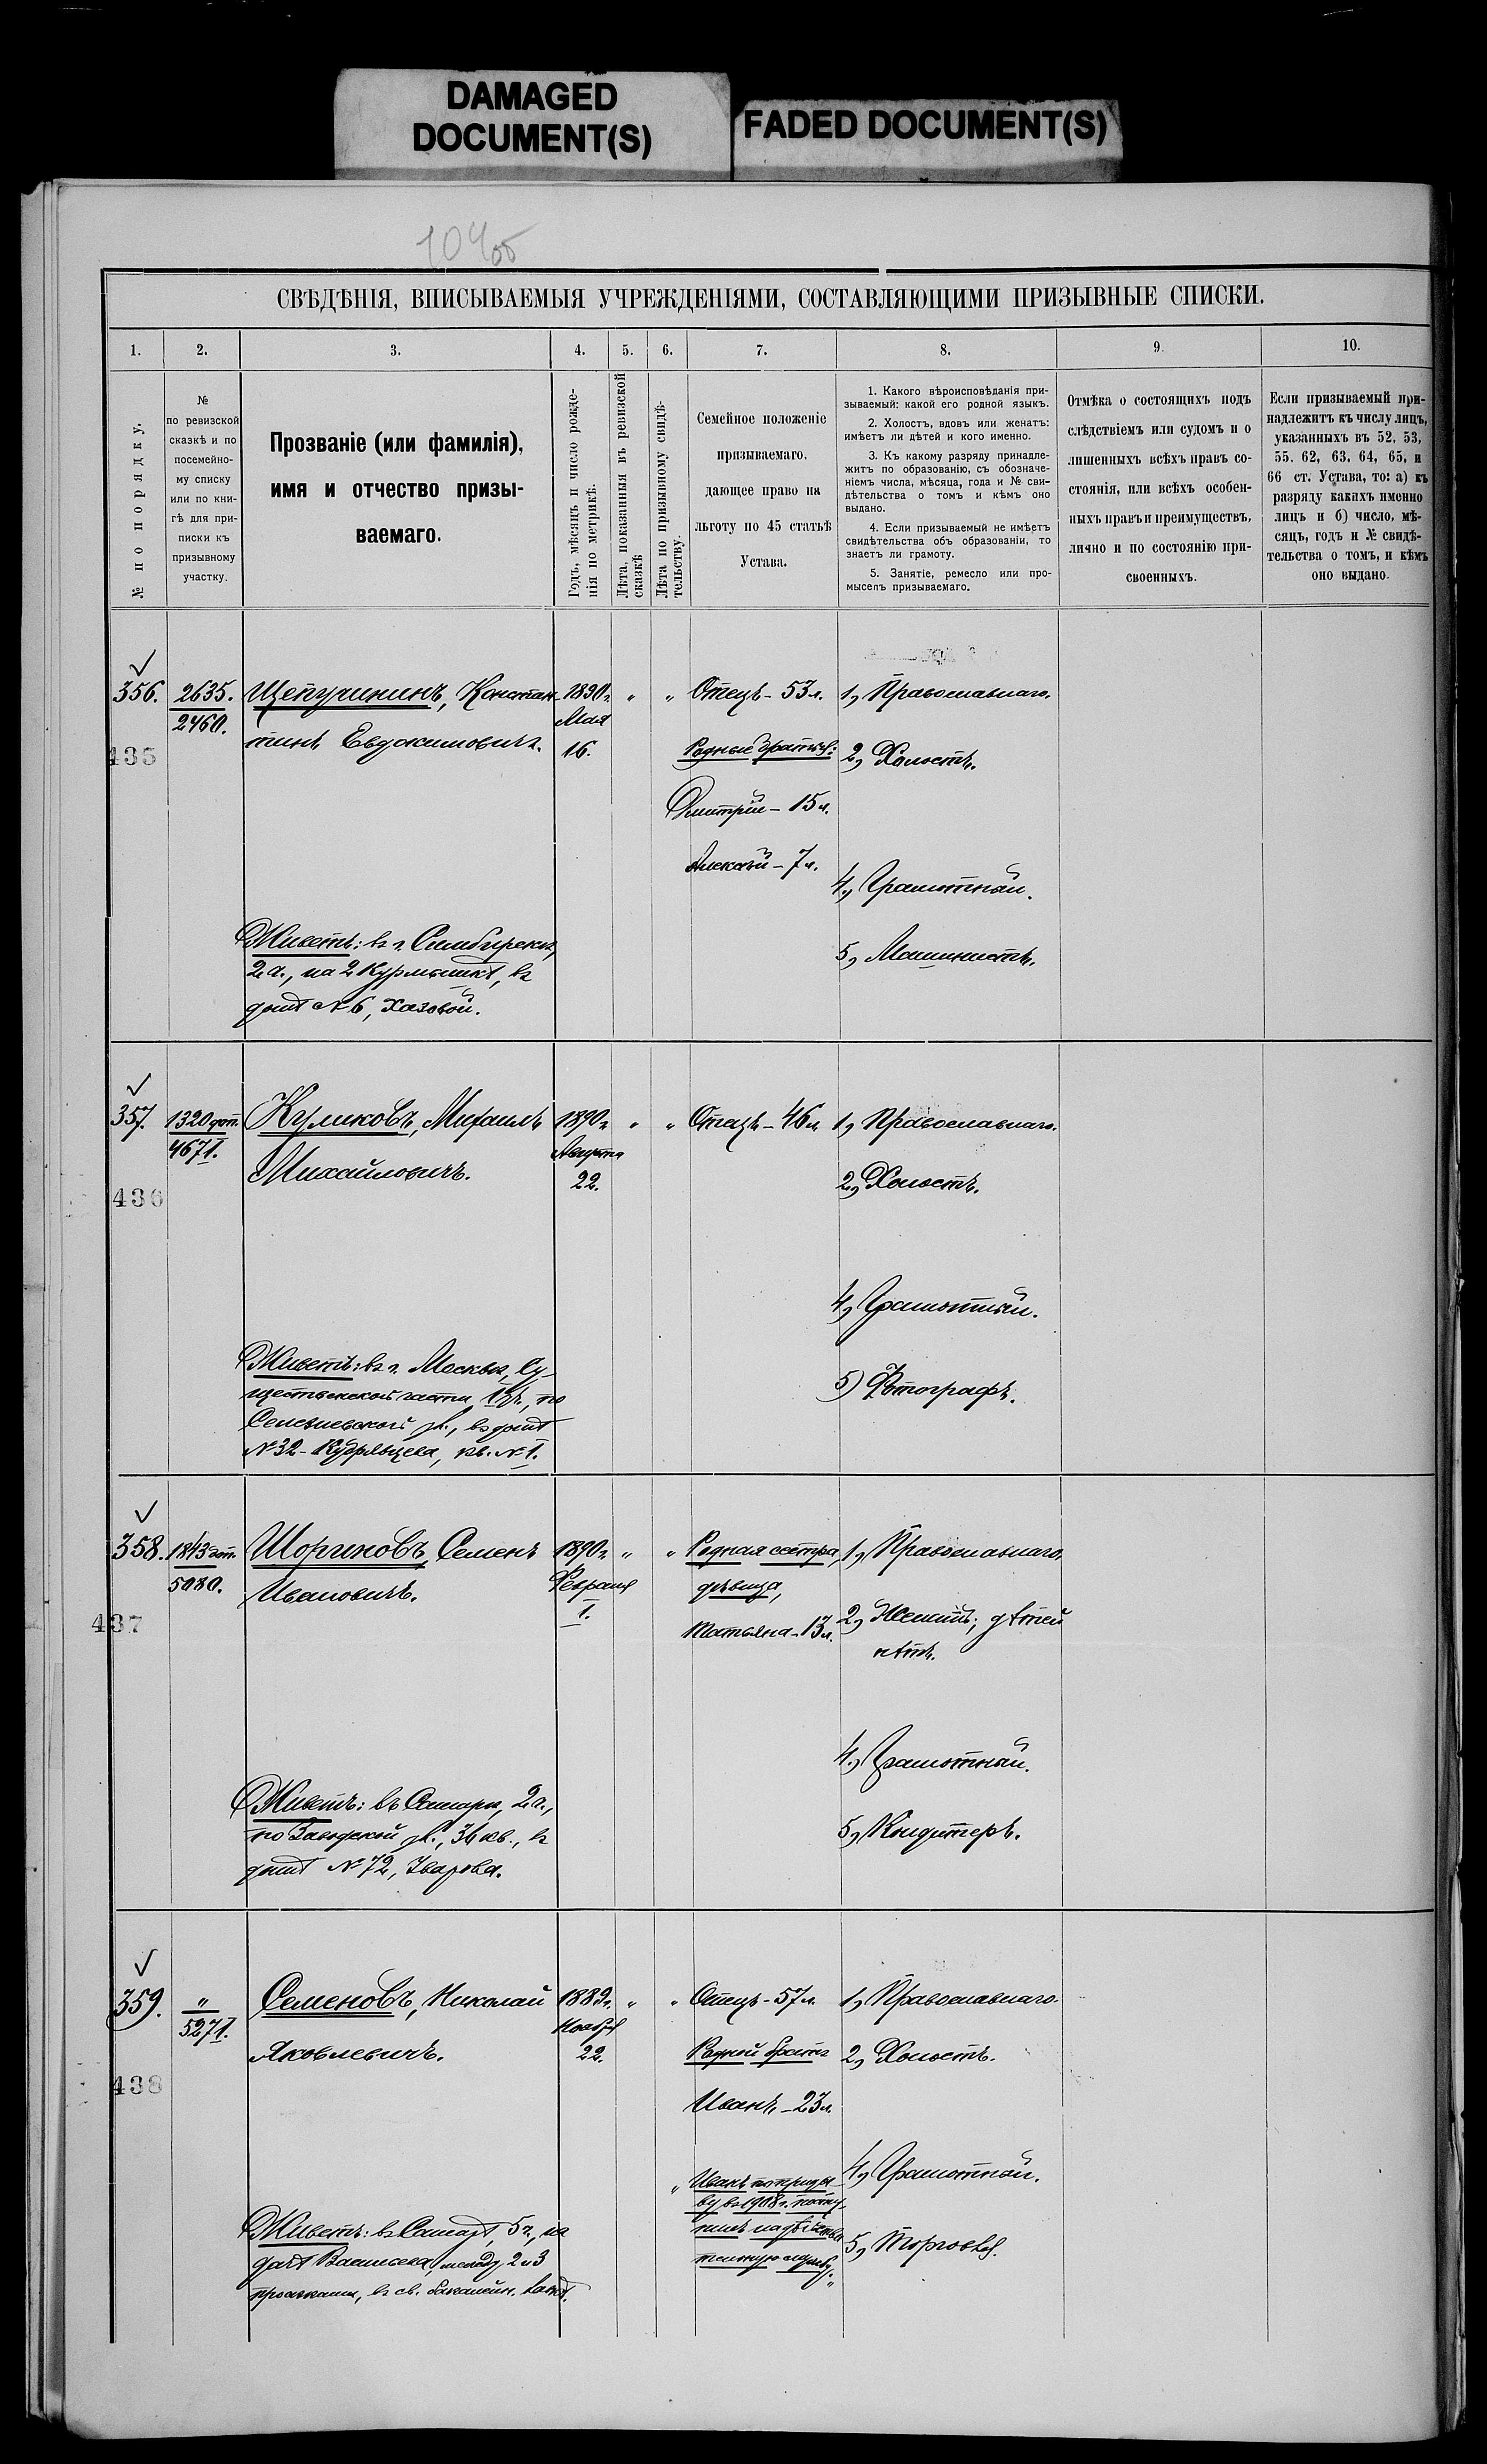 DAMAGED
DOCUMENT(S)
FADED DOCUMENT(S)
СВѢДѢНІЯ, ВПИСЫВАЕМЫЯ УЧРЕЖДЕНІЯМИ, СОСТАВЛЯЮЩИМИ ПРИЗЫВНЫЕ СПИСКИ.
1.
2.
3.
4.
5.
6.
7.
8.
9.
10.
№ по порядку.
№
по ревизской
сказкѣ и по
посемейно-
му списку
или по кни-
гѣ для при-
писки къ
призывному
участку.
Прозваніе (или фамилія),
имя и отчество призы-
ваемаго.
Годъ, мѣсяцъ и число рожде-
нія по метрикѣ.
Лѣта, показанныя въ ревизской
сказкѣ
Лѣта по призывному свидѣ-
тельству.
Семейное положеніе
призываемаго,
дающее право на
льготу по 45 статьѣ
Устава.
1. Какого вѣроисповѣданія при-
зываемый: какой его родной языкъ.
2. Холостъ, вдовъ или женатъ:
имѣетъ ли дѣтей и кого именно.
3. Къ какому разряду принадле-
житъ по образованію, съ обозначе-
ніемъ числа, мѣсяца, года и № сви-
дѣтельства о томъ и кѣмъ оно
выдано.
4. Если призываемый не имѣетъ
свидѣтельства объ образованіи, то
знаетъ ли грамоту.
5. Занятіе, ремесло или про-
мыселъ призываемаго.
Отмѣка о состоящихъ подъ
слѣдствіемъ или судомъ и о
лишенныхъ всѣхъ правъ со-
стоянія, или всѣхъ особен-
ныхъ правъ и преимуществъ,
лично и по состоянію при-
своенныхъ.
Если призываемый при-
надлежитъ къ числу лицъ,
указанныхъ въ 52, 53,
55. 62, 63, 64, 65, и
66 ст. Устава, то: а) къ
разряду какихъ именно
лицъ и б) число, мѣ-
сяцъ, годъ и № свидѣ-
тельства о томъ, и кѣмъ
оно выдано.
356.
435
2635.
2460.
Щепучининъ, Констан-
тинъ Евдокимовичъ.
Живетъ: въ г. Симбирскѣ,
2 ч., на 2 Курмышкѣ, въ
домѣ № 6, Хазовой.
1890 г.
Мая
16.
"
"
Отецъ - 53 л.
Родные братья:
Дмитрій - 15 л.
Алексѣй - 7 л.
1, Православнаго.
2, Холостъ.
4, Грамотный.
5, Машинистъ.
357.
436
1320 дот.
4671.
Куликовъ, Михаилъ
Михайловичъ.
Живетъ: въ г. Москвѣ, Су-
щевской части, 1 у., по
Селезневской ул., въ домѣ
№ 32 - Кудрявцева, кв. № 1.
1890 г.
Августа
22.
"
"
Отецъ - 46 л.
1, Православнаго.
2, Холостъ.
4, Грамотный.
5) Фотографъ.
358.
437
1843 дот.
5080.
Шориновъ, Семенъ
Ивановичъ.
Живетъ: въ Самарѣ, 2 ч.,
по Заводской ул., 36 кв., въ
домѣ № 72, Уварова.
1890 г.
Февраля
1.
"
"
Родная сестра,
дѣвица,
Татьяна - 13 л.
1, Православнаго.
2, Женатъ; дѣтей
нѣтъ.
4, Грамотный.
5, Кондитеръ.
359.
438
"
5271.
Семеновъ, Николай
Яковлевичъ.
Живетъ: въ Самарѣ, 5 ч., на
дачѣ Васильева, между 2 и 3
просѣками, въ св. бакалейн. лавкѣ.
1889 г.
Ноября
22.
"
"
Отецъ - 57 л.
Родной братъ
Иванъ - 23 л.
"Иванъ по призы-
ву въ 1908 г. посту-
пилъ на дѣйстви-
тельную службу."
1, Православнаго.
2, Холостъ.
4, Грамотный.
5, Торговля.